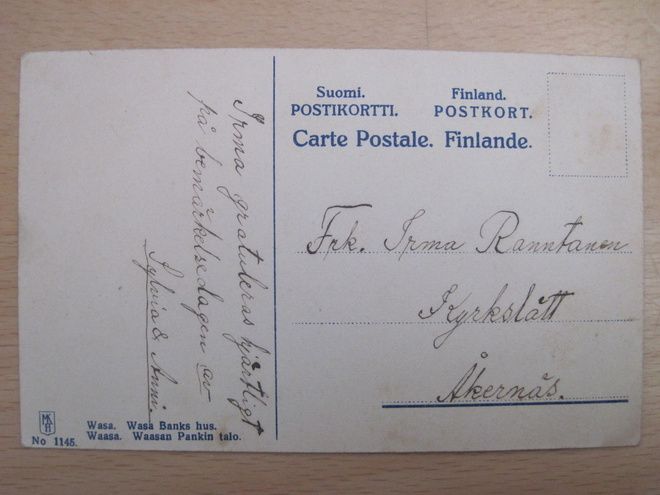 Suomi. Finland.
POSTIKORTTI. POSTKORT.
Carte Postale. Finlande.
Irma gratuleras hjärtligt
på bemärkelsedagen av
Sylvia & Anni.
Frk. Irma Ranntanen
Kyrkslätt
Åkernäs.
Wasa. Wasa Banks hus.
Waasa. Waasan Pankin talo.
No 1145.